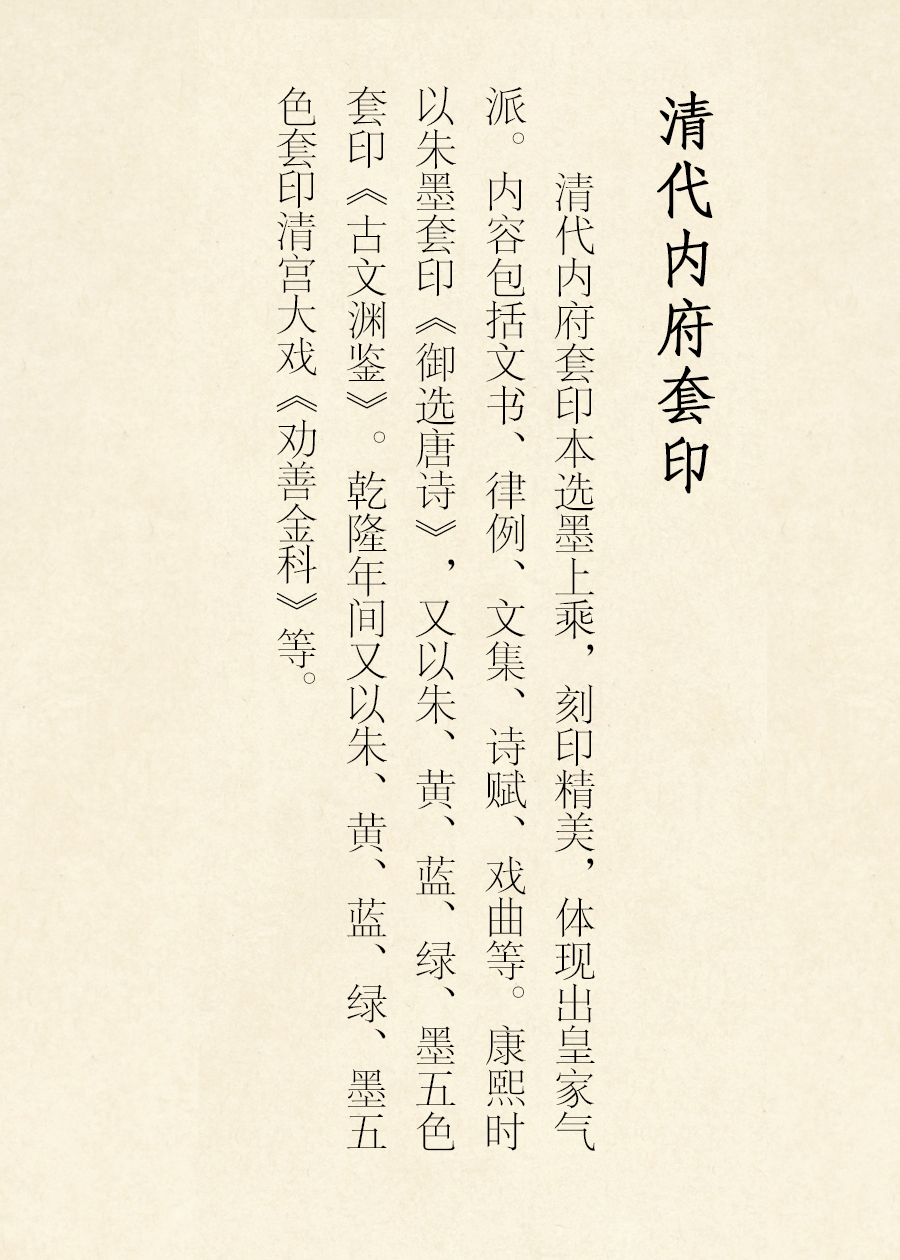 清代内府套印
清代内府套印本选墨上乘，刻印精美，体现出皇家气
派。内容包括文书、律例、文集、诗赋、戏曲等。康熙时
以朱墨套印《御选唐诗》，又以朱、黄、蓝、绿、墨五色
套印《古文渊鉴》。乾隆年间又以朱、黄、蓝、绿、墨五
色套印清宫大戏《劝善金科》等。